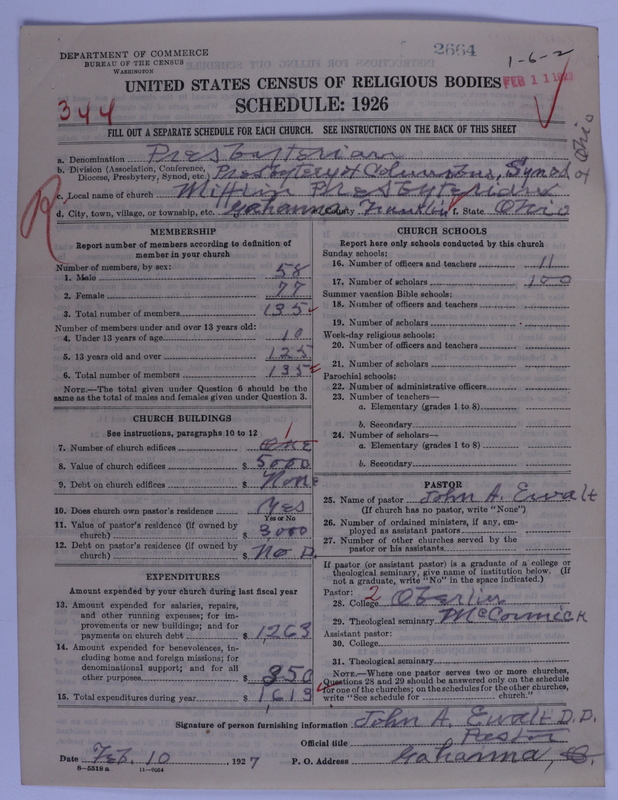 2664
1-6-2
DEPARTMENT OF COMMERCE
BUREAU OF THE CENSUS
WASHINGTON
UNITED STATES CENSUS OF RELIGIOUS BODIES
FEB 11
344
SCHEDULE: 1926
FILL OUT A SEPARATE SCHEDULE FOR EACH CHURCH. SEE INSTRUCTIONS ON THE BACK OF THIS SHEET
Ohio
R
a. Denomination Presbyterian
b. Division (Association, Conference, Diocese, Presbytery, Synod, etc.) Presbytery of Columbus, Synod
c. Local name of church Mifflin Presbyterian
d. City, town, village, or township, etc. Gahanna County Franklin f. State Ohio
MEMBERSHIP
Report number of members according to definition of
member in your church
Number of members, by sex:
1. Male 58
2. Female 77
3. Total number of members 135
Number of members under and over 13 years old:
4. Under 13 years of age 10
5. 13 years old and over 125
6. Total number of members 135
NOTE.—The total given under Question 6 should be the
same as the total of males and females given under Question 3.
CHURCH BUILDINGS
See instructions, paragraphs 10 to 12
7. Number of church edifices one
8. Value of church edifices $ 5000
9. Debt on church edifices $ None
10. Does church own pastor's residence Yes
Yes or No
11. Value of pastor's residence (if owned by
church) $ 3000
12. Debt on pastor's residence (if owned by
church) $ No D.
EXPENDITURES
Amount expended by your church during last fiscal year
13. Amount expended for salaries, repairs,
and other running expenses; for im-
provements or new buildings; and for
payments on church debt $ 1,263
14. Amount expended for benevolences, in-
cluding home and foreign missions; for
denominational support; and for all
other purposes $ 350
15. Total expenditures during year $ 1613
CHURCH SCHOOLS
Report here only schools conducted by this church
Sunday schools:
16. Number of officers and teachers 11
17. Number of scholars 100
Summer vacation Bible schools:
18. Number of officers and teachers
19. Number of scholars
Week-day religious schools:
20. Number of officers and teachers
21. Number of scholars
Parochial schools:
22. Number of administrative officers
23. Number of teachers—
a. Elementary (grades 1 to 8)
b. Secondary
24. Number of scholars—
a. Elementary (grades 1 to 8)
b. Secondary
PASTOR
25. Name of pastor John A. Ewalt
(If church has no pastor, write "None")
26. Number of ordained ministers, if any, em-
ployed as assistant pastors
27. Number of other churches served by the
pastor or his assistants
If pastor (or assistant pastor) is a graduate of a college or
theological seminary, give name of institution below. (If
not a graduate, write "No" in the space indicated.)
Pastor: 2
28. College Oberlin
29. Theological seminary McCormick
Assistant pastor:
30. College
31. Theological seminary
NOTE.—Where one pastor serves two or more churches,
Questions 28 and 29 should be answered only on the schedule
for one of the churches; on the schedules for the other churches,
write "See schedule for church."
Signature of person furnishing information John A. Ewalt D.D.
Official title Pastor
Date Feb. 10, 1927 P. O. Address Gahanna, O.
8—5518 a 11—9064